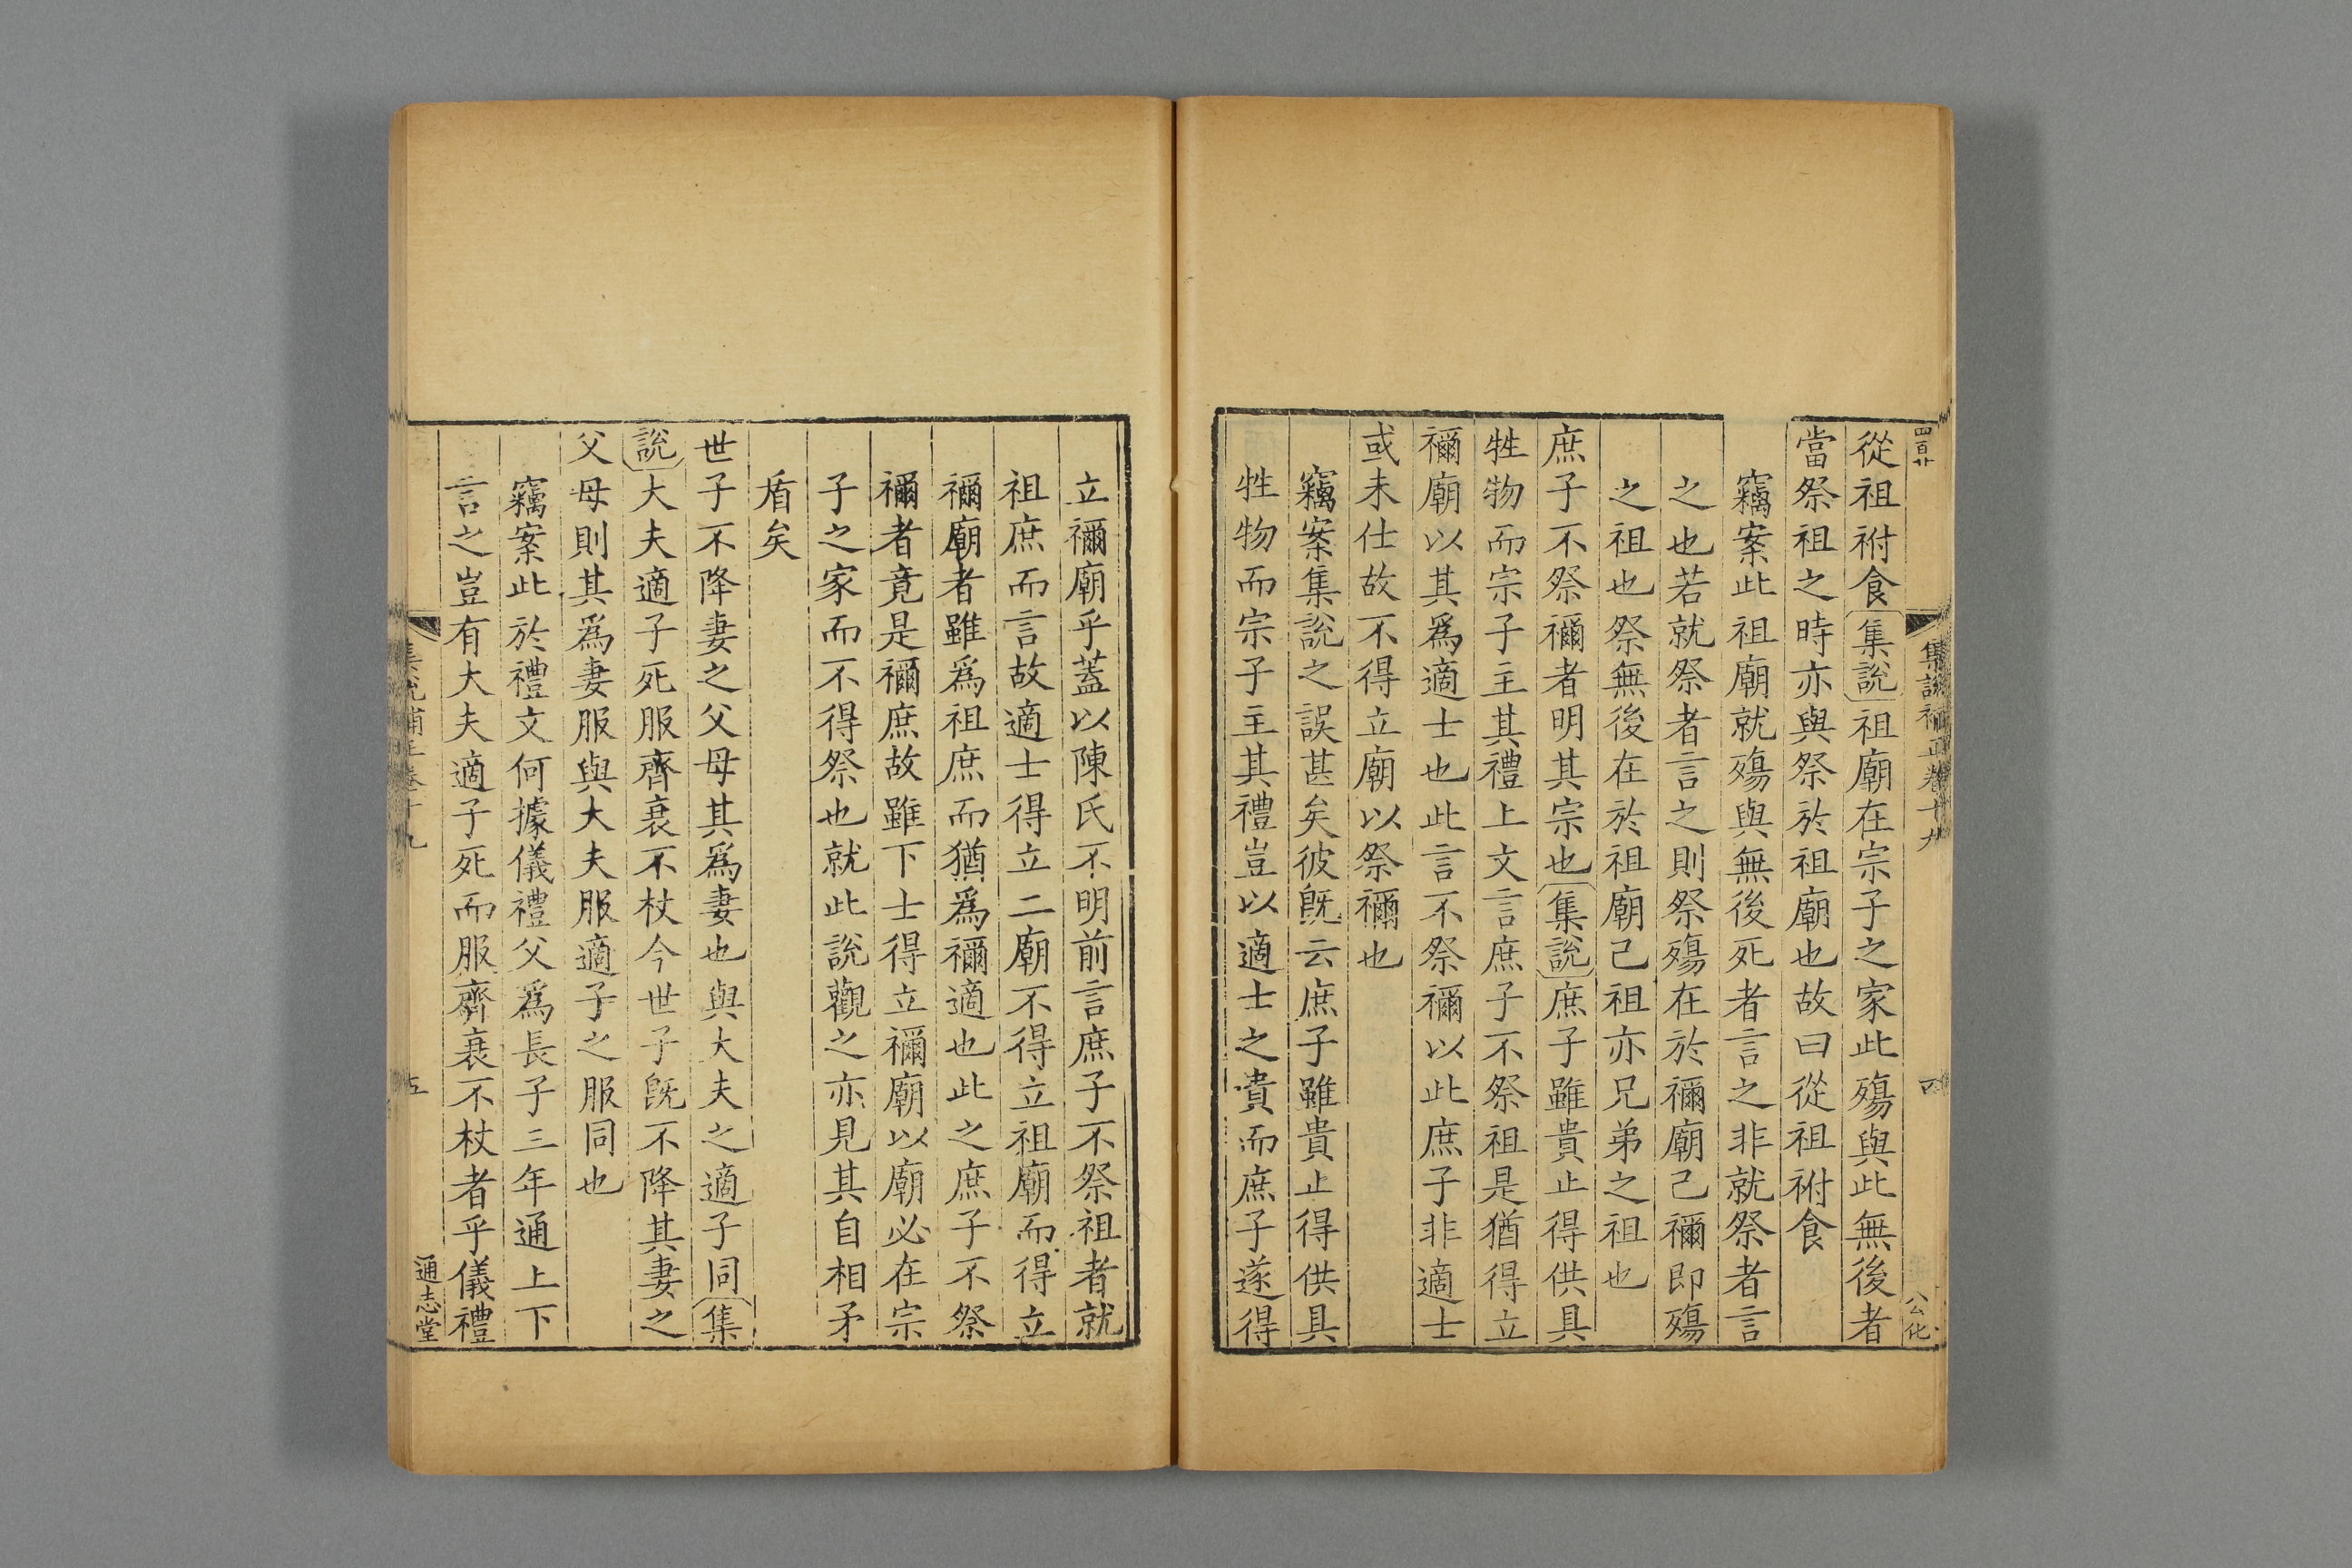 四百廿
集說補正卷十九
四
公化
從祖祔食集說祖廟在宗子之家此殤與此無後者
當祭祖之時亦與祭於祖廟也故曰從祖祔食
竊案此祖廟就殤與無後死者言之非就祭者言
之也若就祭者言之則祭殤在於禰廟己禰即殤
之祖也祭無後在於祖廟己祖亦兄弟之祖也
庶子不祭禰者明其宗也集說庶子雖貴止得供具
牲物而宗子主其禮上文言庶子不祭祖是猶得立
禰廟以其爲適士也此言不祭禰以此庶子非適士
或未仕故不得立廟以祭禰也
竊案集說之誤甚矣彼旣云庶子雖貴止得供具
牲物而宗子主其禮豈以適士之貴而庶子遂得
立禰廟乎蓋以陳氏不明前言庶子不祭祖者就
祖庶而言故適士得立二廟不得立祖廟而得立
禰廟者雖爲祖庶而猶爲禰適也此之庶子不祭
禰者竟是禰庶故雖下士得立禰廟以廟必在宗
子之家而不得祭也就此說觀之亦見其自相矛
盾矣
世子不降妻之父母其爲妻也與大夫之適子同集
說大夫適子死服齊衰不杖今世子旣不降其妻之
父母則其爲妻服與大夫服適子之服同也
竊案此於禮文何據儀禮父爲長子三年通上下
言之豈有大夫適子死而服齊衰不杖者乎儀禮
集說補正卷十九
五
通志堂